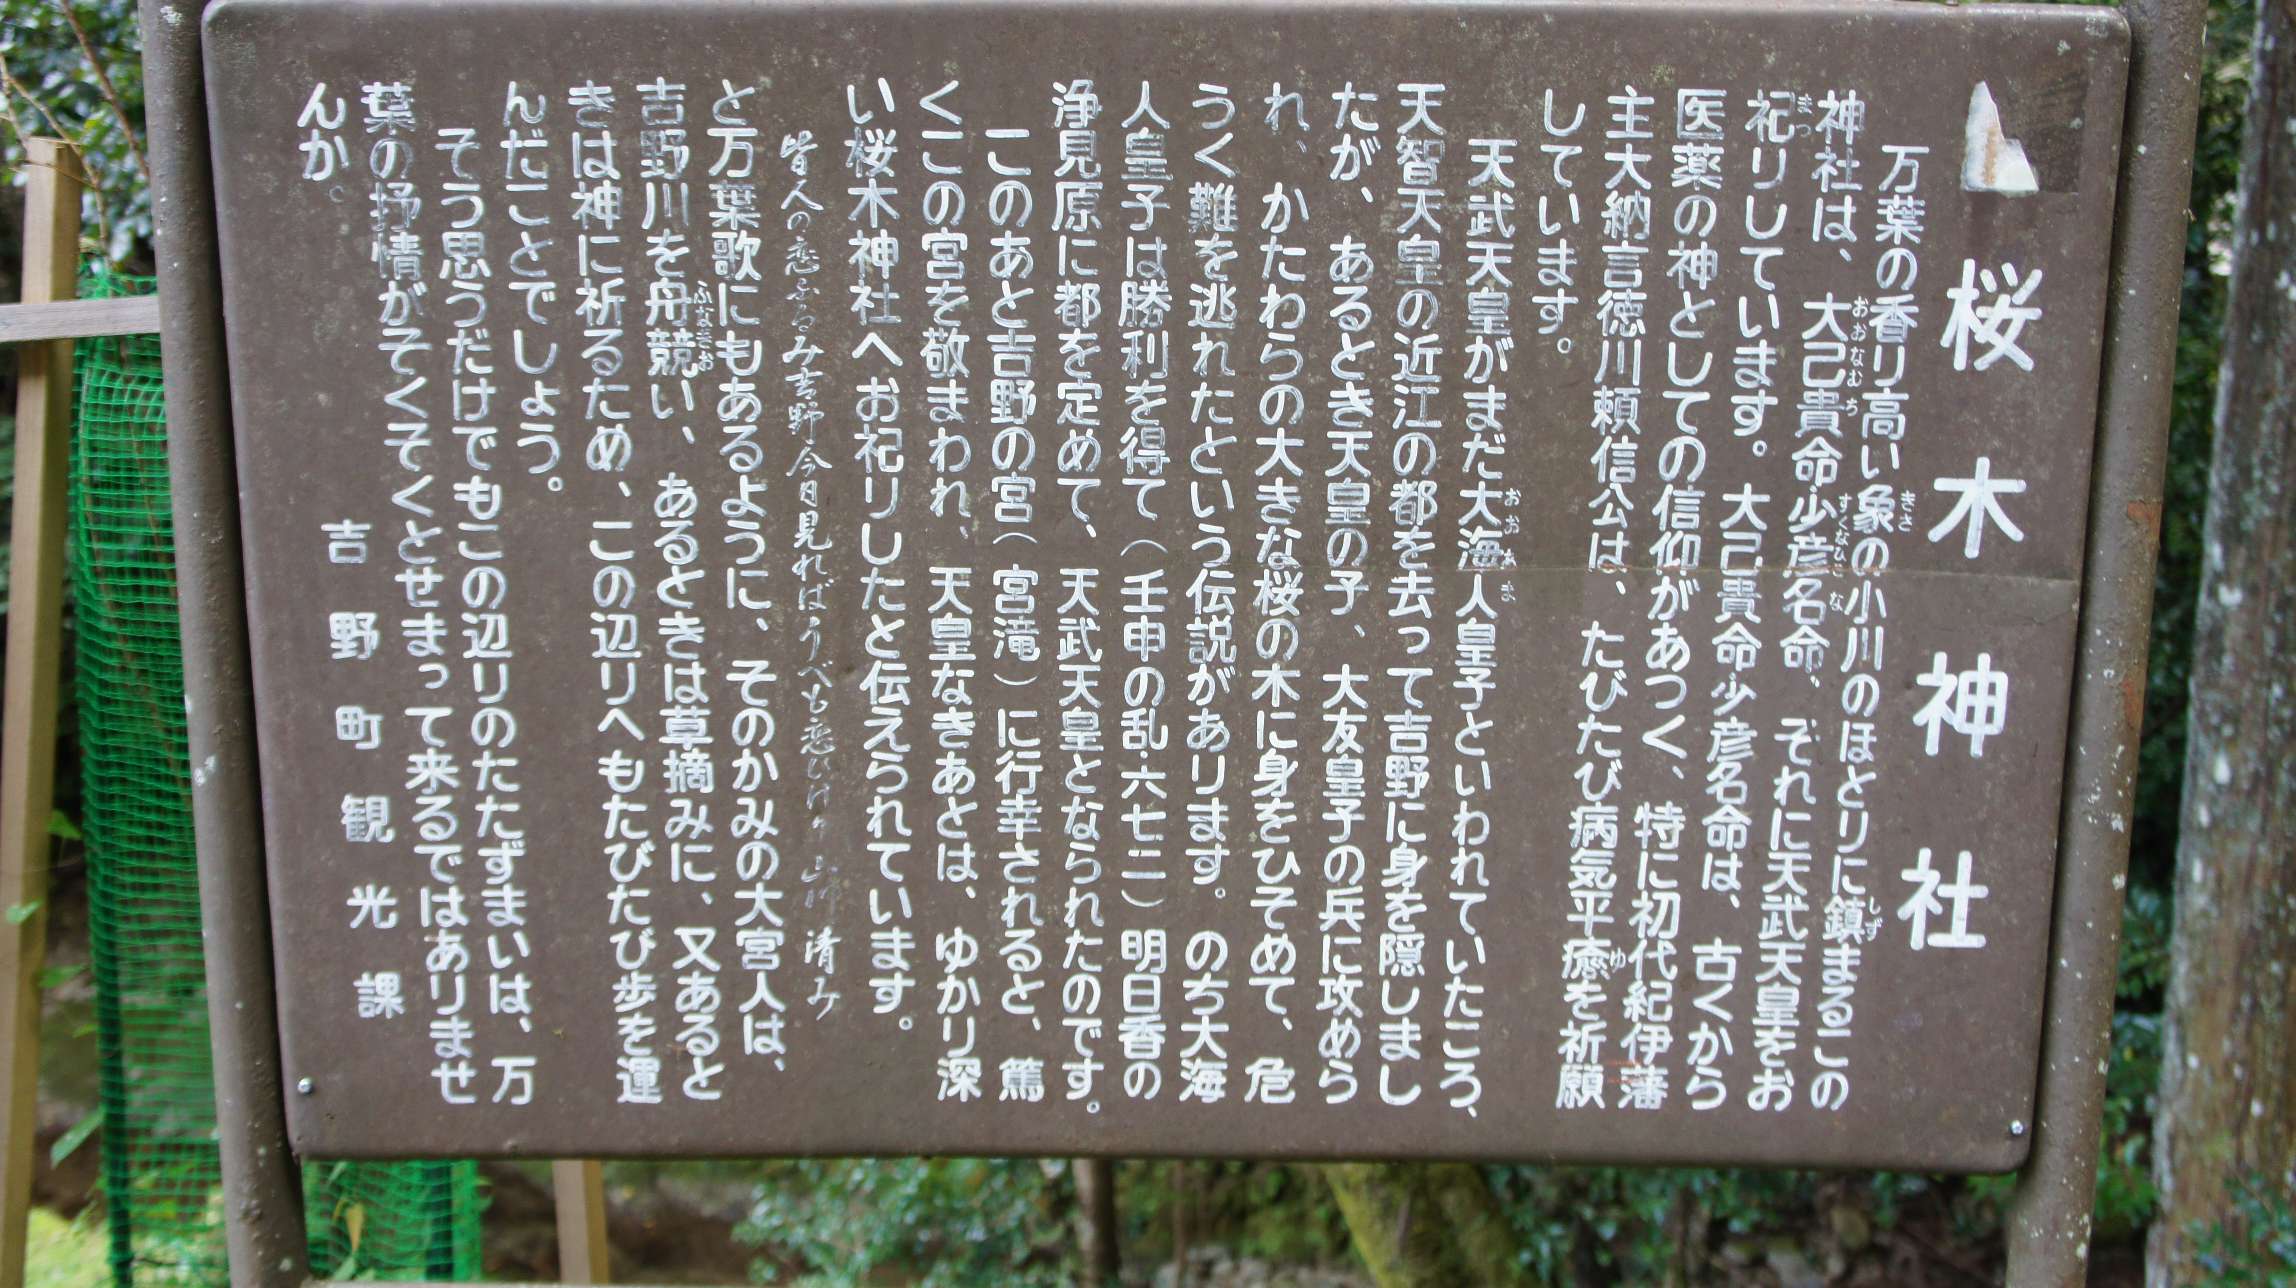 桜木神社
万葉の香り高い象の小川のほとりに鎮まるこの
神社は、大己貴命・少彦名命、それに天武天皇をお
祀りしています。大己貴命少彦名命は、古くから
医薬の神としての信仰があつく、特に初代紀伊藩
主大納言徳川頼信公は、たびたび病気平癒を祈願
しています。
天武天皇がまだ大海人皇子といわれていたころ、
天智天皇の近江の都を去って吉野に身を隠しまし
たが、あるとき天皇の子、大友皇子の兵に攻めら
れ、かたわらの大きな桜の木に身をひそめて、危
うく難を逃れたという伝説があります。のち大海
人皇子は勝利を得て（壬申の乱・六七二）明日香の
浄見原に都を定めて、天武天皇となられたのです。
このあと吉野の宮（宮滝）に行幸されると、篤
くこの宮を敬まわれ、天皇なきあとは、ゆかり深
い桜木神社へお祀りしたと伝えられています。
皆人の恋ふるみ吉野今日見ればうべも恋ひけり山川清み
と万葉歌にもあるように、そのかみの大宮人は、
吉野川を舟競い、あるときは草摘みに、又あると
きは神に祈るため、この辺りへもたびたび歩を運
んだことでしょう。
そう思うだけでもこの辺りのたたずまいは、万
葉の抒情がそくそくとせまって来るではありませ
んか。
吉野町観光課